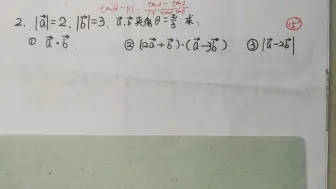 2. |a⃗|=2. |b⃗|=3. a⃗.b⃗夹角θ=π/3 求:
① a⃗·b⃗ ② (2a⃗+b⃗)·(a⃗-3b⃗) ③ |a⃗-2b⃗|